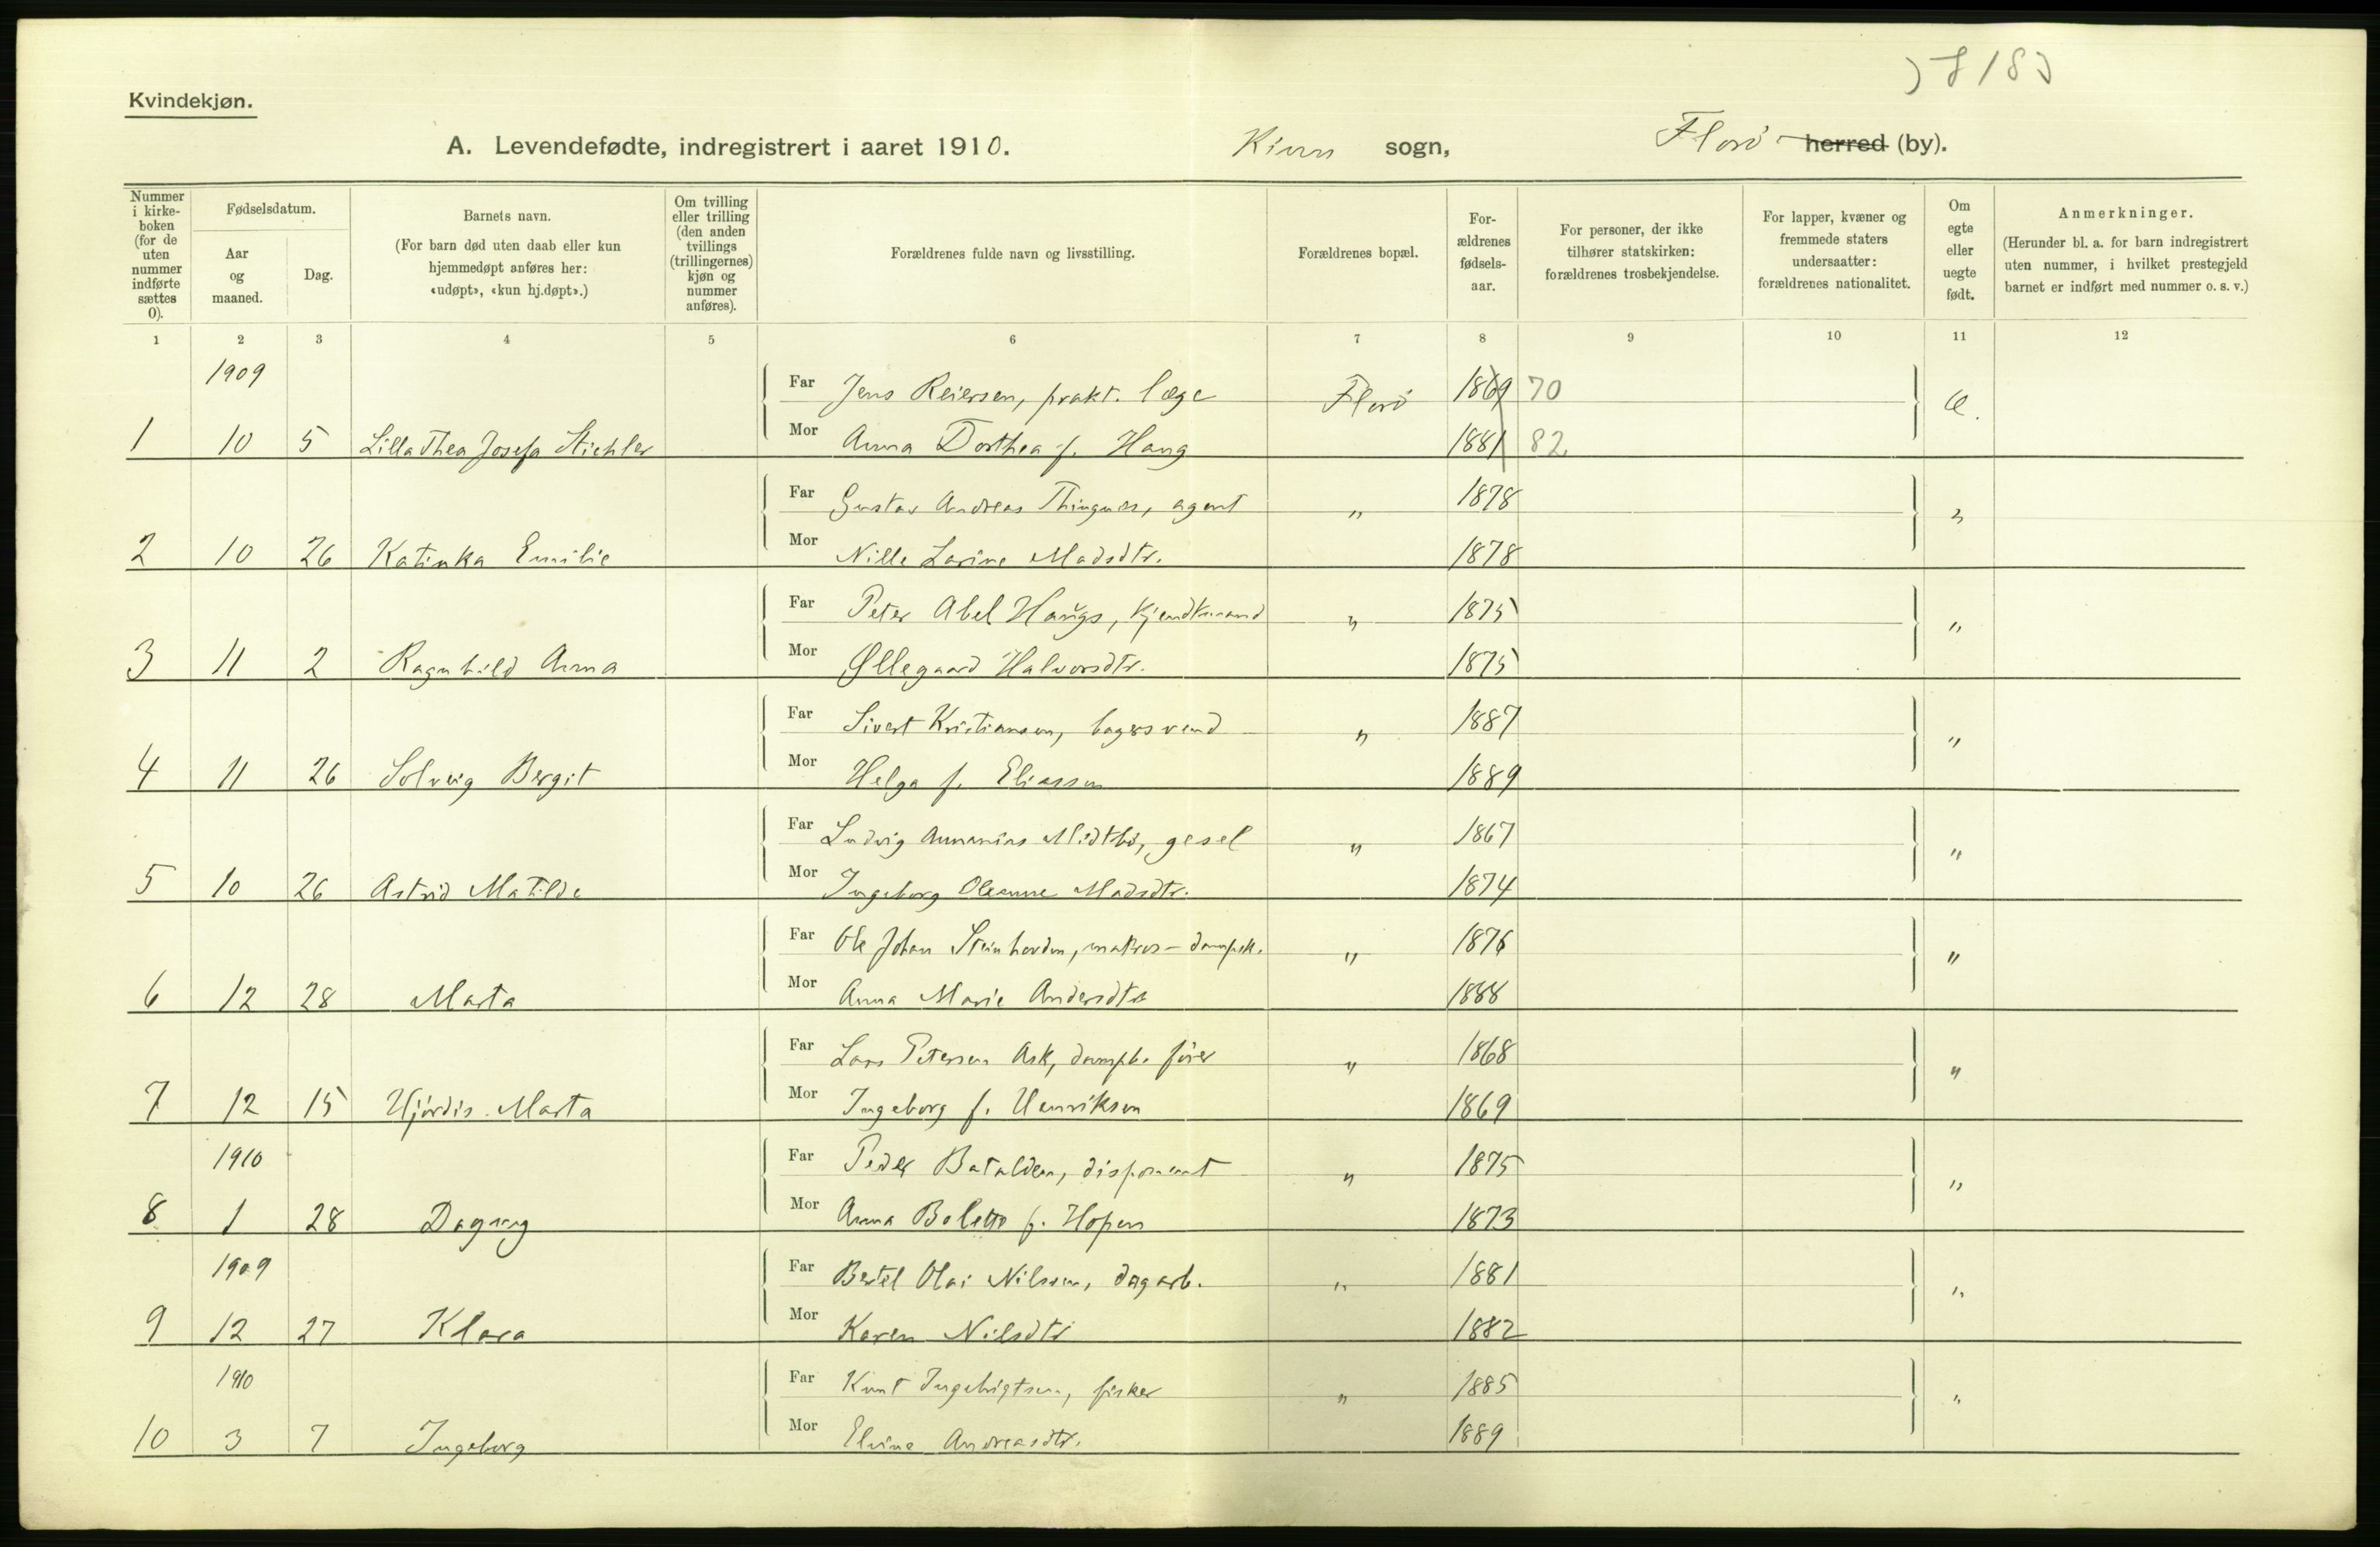 8183
Kvindekjøn.
A. Levendefødte, indregistrert i aaret 1910. Kinn sogn, Florø herred (by).
Nummer i kirke-boken (for de uten nummer indførte sættes 0).
Fødselsdatum.
Aar og maaned.
Dag.
Barnets navn.
(For barn død uten daab eller kun hjemmedøpt anføres her: «udøpt», «kun hj.døpt».)
Om tvilling eller trilling (den anden tvillings (trillingernes) kjøn og nummer anføres).
Forældrenes fulde navn og livsstilling.
Forældrenes bopæl.
For-ældrenes fødsels-aar.
For personer, der ikke tilhører statskirken: forældrenes trosbekjendelse.
For lapper, kvæner og fremmede staters undersaatter: forældrenes nationalitet.
Om egte eller uegte født.
Anmerkninger.
(Herunder bl. a. for barn indregistrert uten nummer, i hvilket prestegjeld barnet er indført med nummer o. s. v.)
1 2 3 4 5 6 7 8 9 10 11 12
1909
Far Jens Reiersen, prakt. læge Florø 1869 70 e.
1 10 5 Lilla Thea Josefa Stichler Mor Anna Dorthea f. Haug 1881 82
Far Gustav Andreas Thingnes, agent " 1878 "
2 10 26 Katinka Emilie Mor Nille Larine Madsdtr. 1878
Far Peter Abel Haugs, Kjendtmand " 1875 "
3 11 2 Ragnhild Anna Mor Øllegaard Halvorsdtr. 1875
Far Sivert Kristiansen, bagersvend " 1887 "
4 11 26 Solveig Bergit Mor Helga f. Eliassen 1889
Far Ludvig Annanias Midtbø, gesel " 1867 "
5 10 26 Astrid Matilde Mor Ingeborg Oleanne Madsdtr. 1874
Far Ole Johan Steinhovden, matros - dampsk. " 1876 "
6 12 28 Marta Mor Anna Marie Andersdtr 1888
Far Lars Petersen Ask, dampb. fører " 1868 "
7 12 15 Hjørdis Marta Mor Ingeborg f. Henriksen 1869
1910
Far Peder Batalden, disponent " 1875 "
8 1 28 Dagny Mor Anna Bolette f. Hopen 1873
1909
Far Bertel Olai Nilssen, dagarb. " 1881 "
9 12 27 Klara Mor Karen Nilsdtr 1882
1910
Far Knut Ingebrigtsen, fisker " 1885 "
10 3 7 Ingeborg Mor Elvine Andreasdtr. 1889